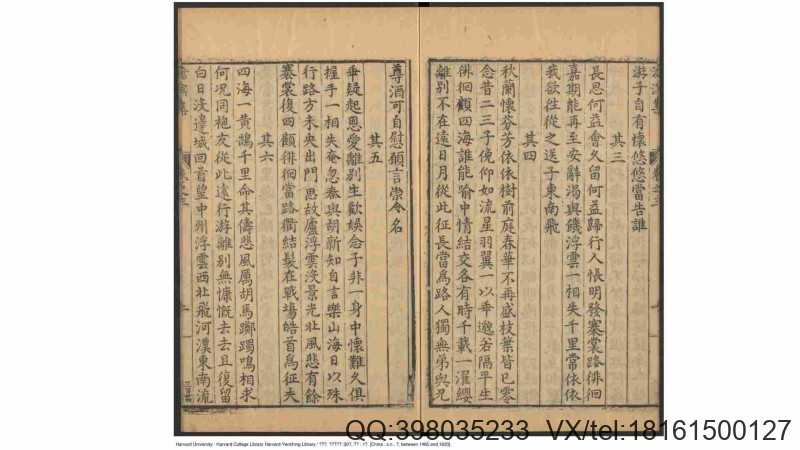 游子自有懷悠悠當告誰
其三
長思何益會久留何益歸行人悵明發褰裳路徘徊
嘉期能再至安辭渴與饑浮雲一相失千里常依依
我欲往從之送子東南飛
其四
秋蘭懷芬芳依依樹前庭春華不再盛枝葉皆已零
念昔二三子俛仰如流星羽翼一以乖邈若隔平生
徘徊顧四海誰能踰中情結交各有時千載一濯纓
離別不在遠日月從此征長當為路人獨無弟與兄
尊酒可自慰願言崇令名
其五
乖疑起恩愛離別生歡娛念子非一身中懷難久俱
握手一相失奄忽秦與胡新知自言樂山海日以殊
行路方未央出門思故廬浮雲沒景光北風悲有餘
褰裳復四顧徘徊當路衢結髮在戰場皓首為征夫
其六
四海一黃鵠千里命其儔悲風厲胡馬躑躅鳴相求
何況同袍友從此遠行游離別無慷慨去去且復留
白日沒邊城回首望中州浮雲西北飛河漢東南流
QQ:398035233 VX/tel:18161500127